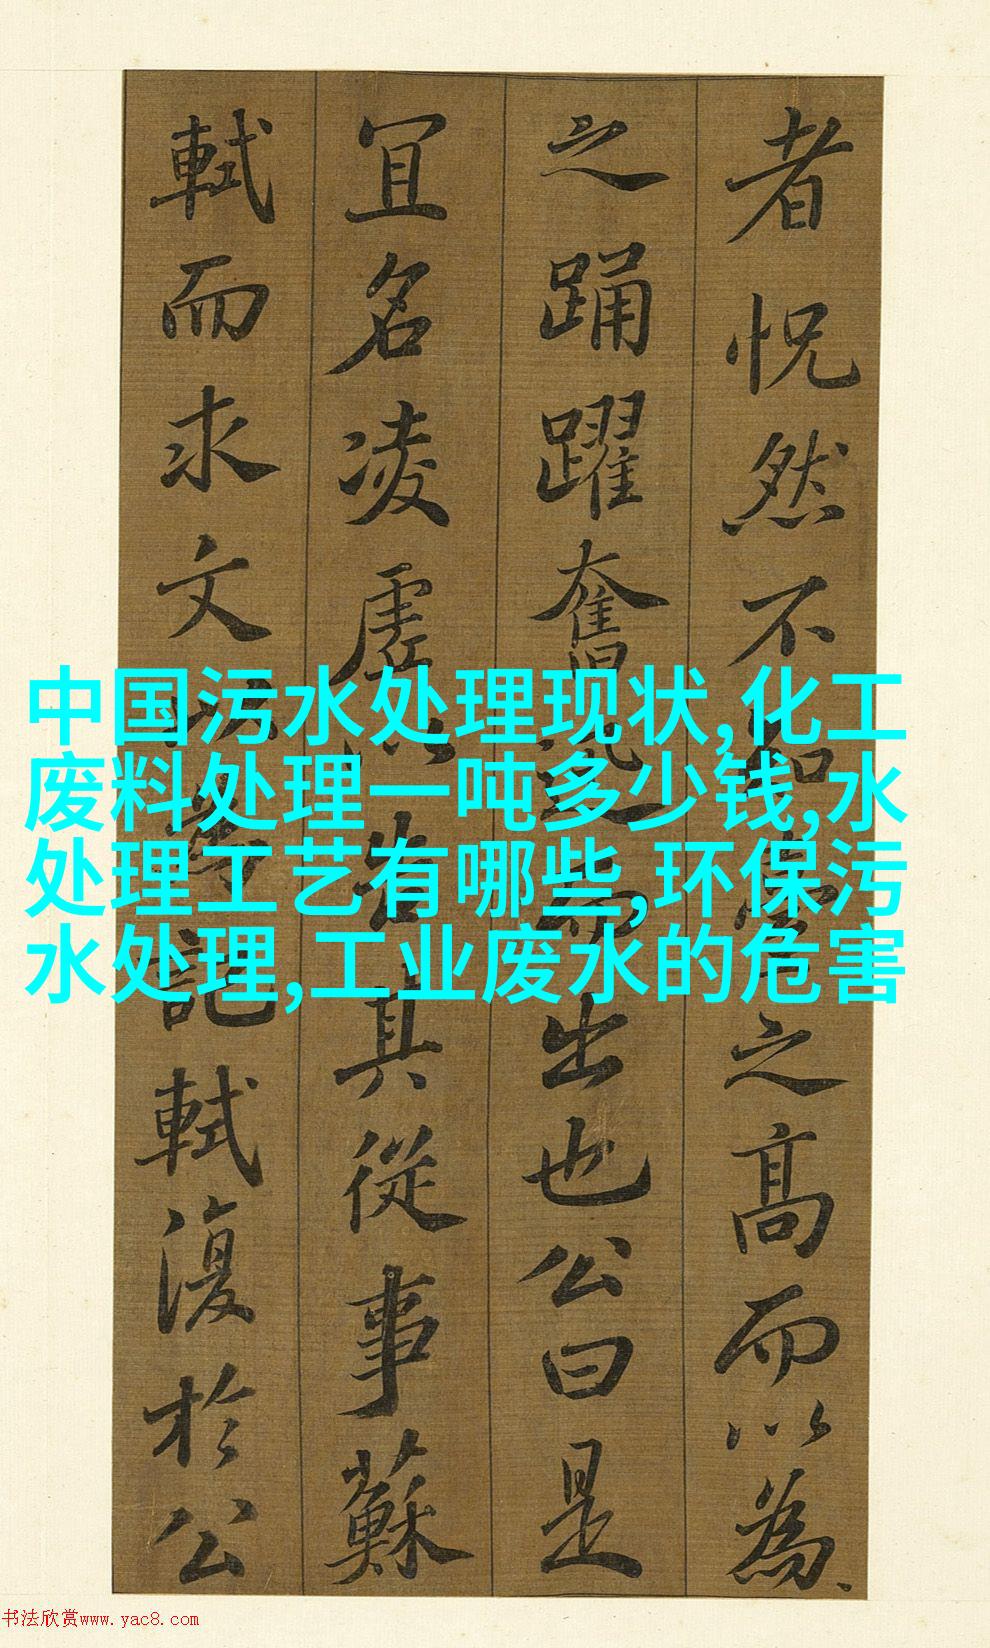 者怳然不知臺之高而以為
之踊躍奮迅而出也公曰是
冝名凌虛以告其從事蘇
軾而求文以為記軾復於公
中国污水处理现状,化工
废料处理一吨多少钱,水
处理工艺有哪些,环保污
水处理,工业废水的危害
书法欣赏www.yac8.com